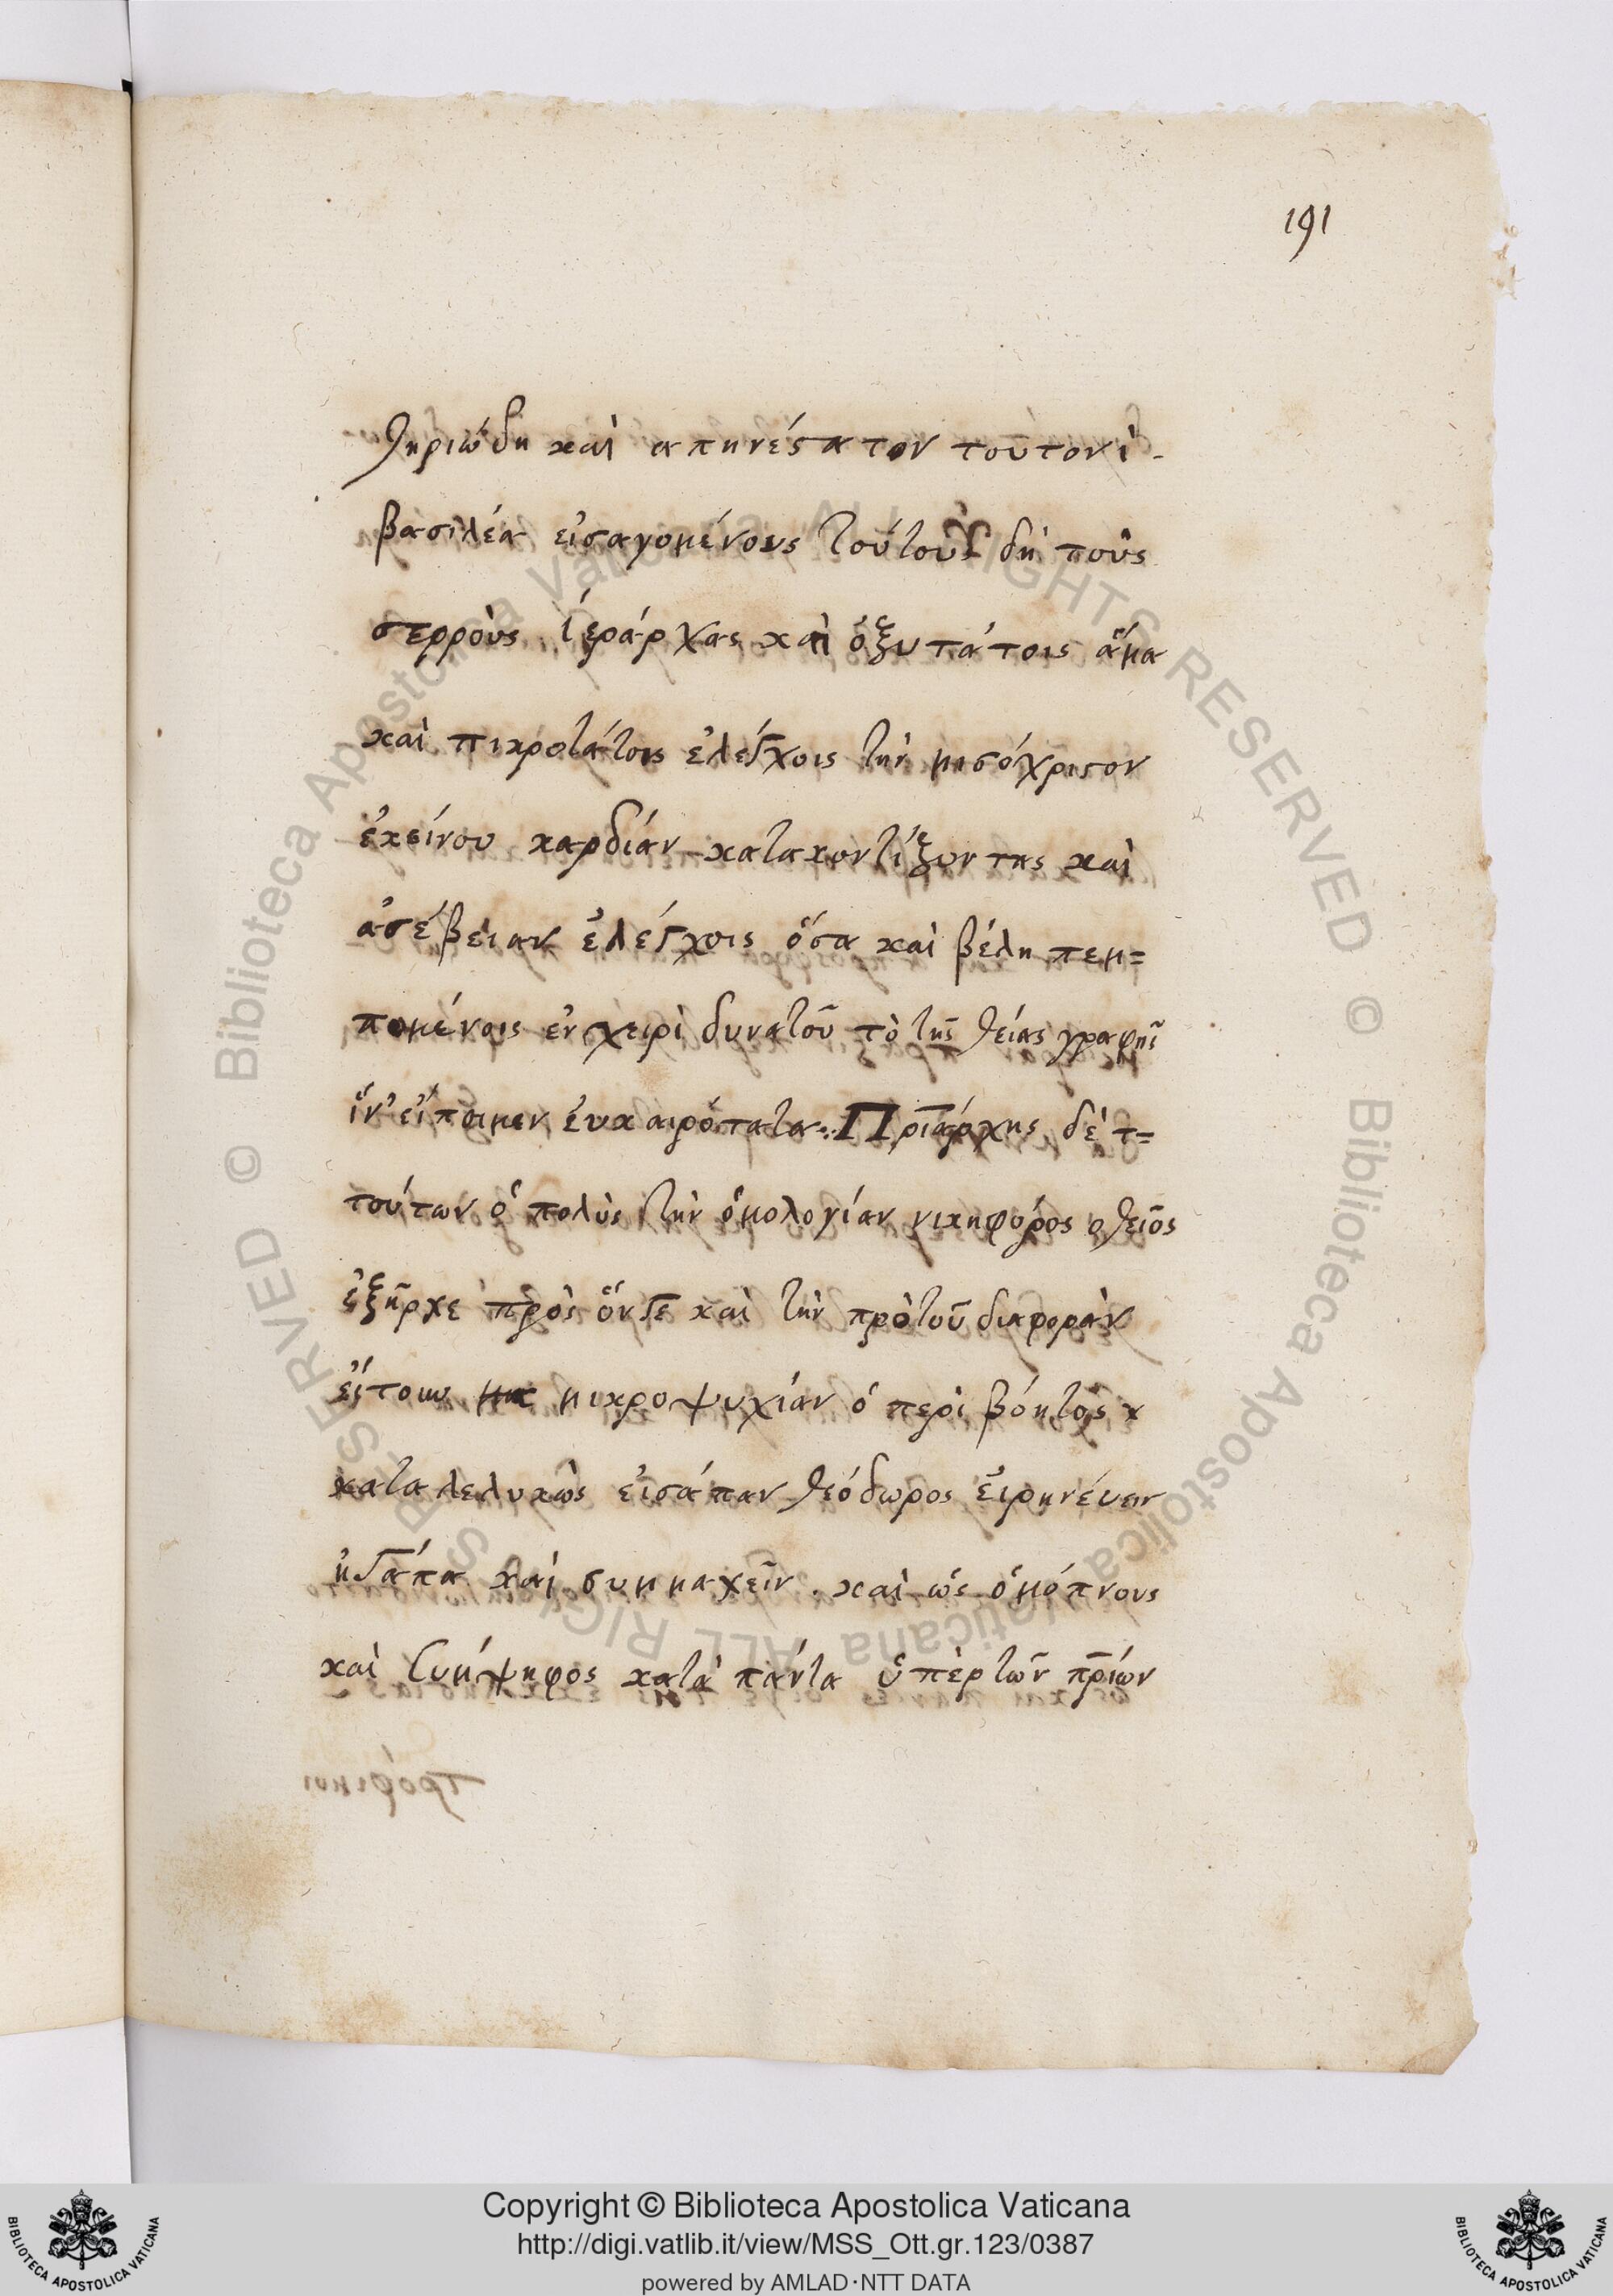 191
θηριώδη καὶ απηνέστατον τουτονὶ
βασιλέα εἰσαγομένους τούτους δὴ τοὺς
στερροὺς ἱεράρχας καὶ ὀξυτάτοις ἅμα
καὶ πικροτάτοις ἐλέγχοις τὴν μισόχριστον
ἐκείνου καρδίαν κατακοντίζοντας καὶ
ἀσέβειαν ἐλέγχοις ὅσα καὶ βέλη πεμ=
πομένοις ἐν χειρὶ δυνατοῦ τὸ τῆς θείας γραφῆς
ἵν' εἴποιμεν ἐυκαιρότατα Πριάρχης δὲ τ=
τούτων ὁ πολὺς τὴν ὁμολογίαν νικηφόρος ο θεῖος
ἐξῆρχε πρὸς ὅν τε καὶ τὴν πρὸ τοῦ διαφορὰν
μικροψυχίαν ὁ περὶ βόητὸς
καταλελυκὼς εἰσάπαν θεόδωρος εἰρηνέυειν
καὶ συμμαχεῖν. καὶ ὡς ὁμόπνους
καὶ συμψηφος κατὰ πάντα ὑπὲρ τῶν πρίων
Biblioteca Apostolica Vaticana ALL RIGHTS RESERVED ©
Biblioteca Apostolica Vaticana ALL RIGHTS RESERVED ©
Copyright © Biblioteca Apostolica Vaticana
http://digi.vatlib.it/view/MSS_Ott.gr.123/0387
powered by AMLAD·NTT DATA
BIBLIOTECA APOSTOLICA VATICANA
BIBLIOTECA APOSTOLICA VATICANA